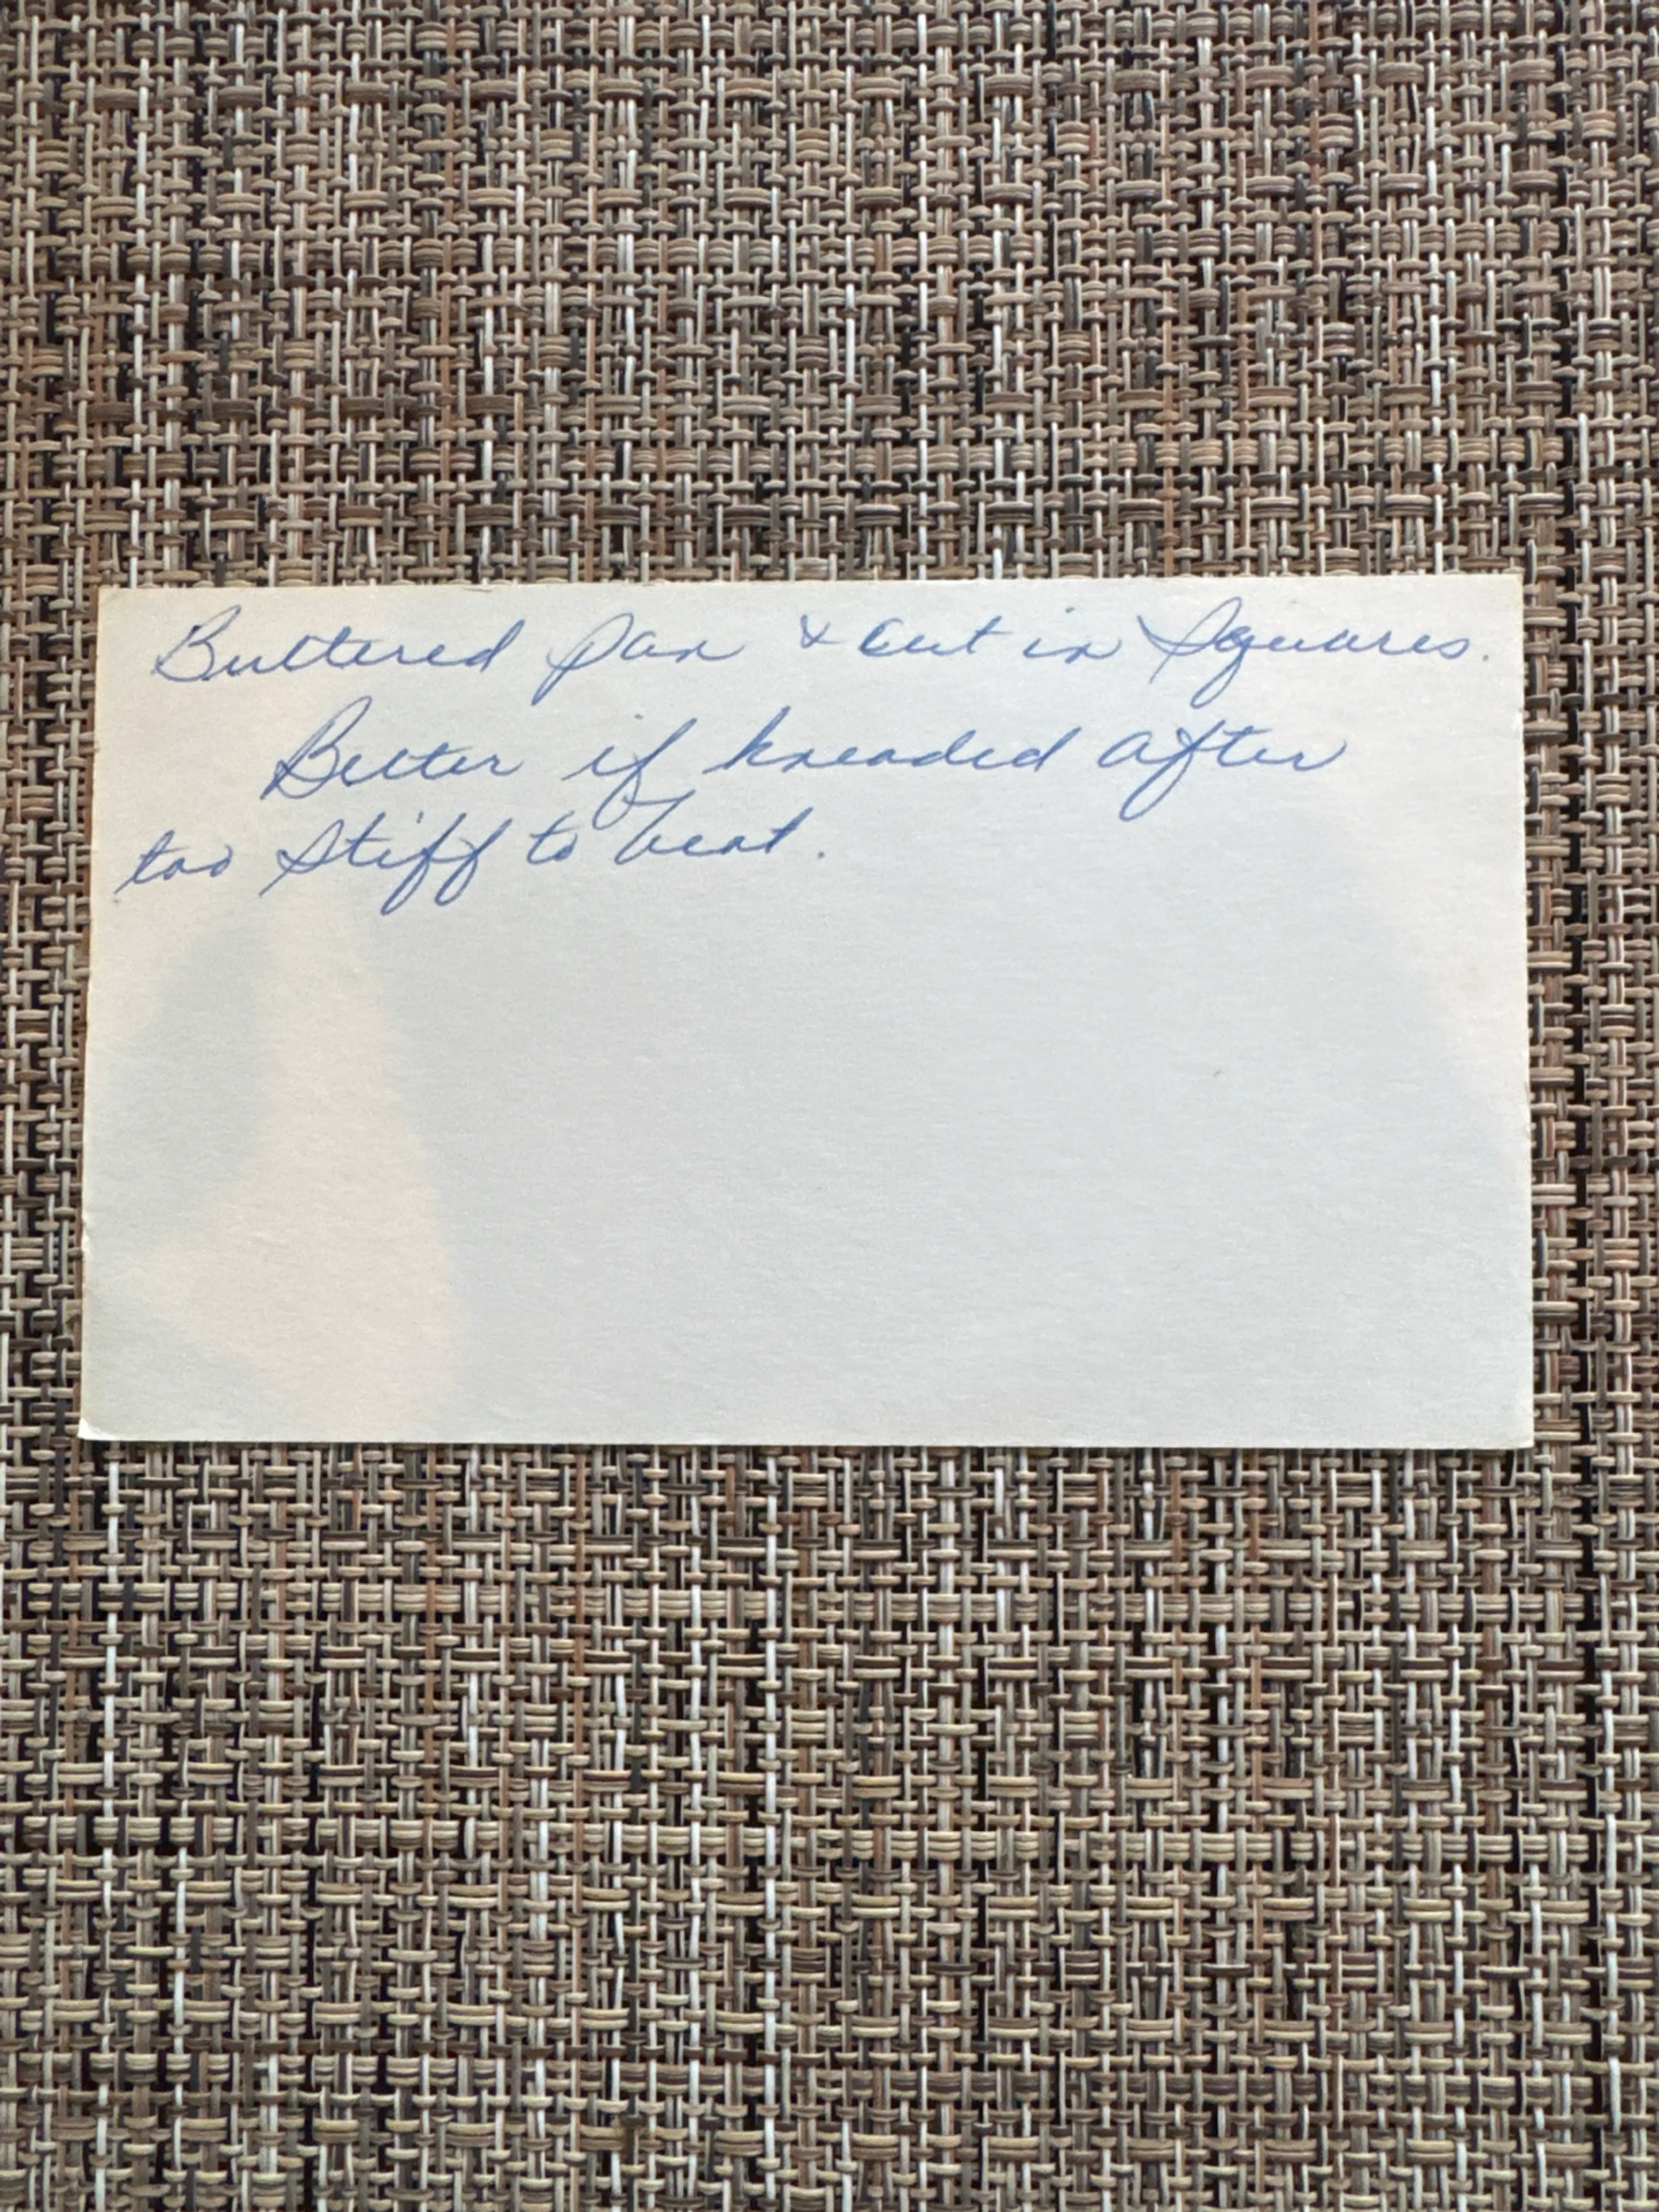 Buttered pan & cut in Squares.
Better if kneaded after
too stiff to beat.